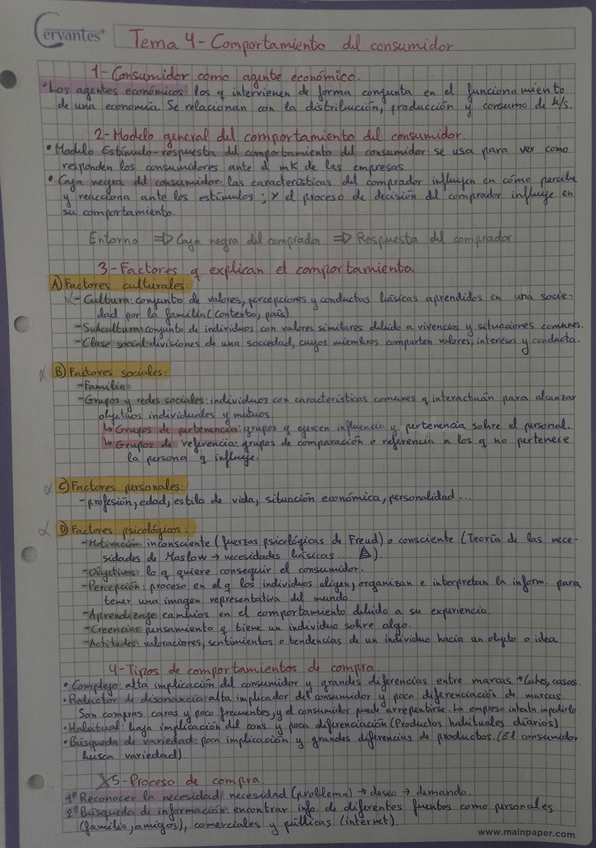 Cervantes®
Tema 4 - Comportamiento del consumidor
1- Consumidor como agente económico.
• Los agentes económicos: los q intervienen de forma conjunta en el funcionamiento
de una economía. Se relacionan con la distribución, producción y consumo de b/s.
2- Modelo general del comportamiento del consumidor.
• Modelo Estímulo-respuesta del comportamiento del consumidor: se usa para ver como
responden los consumidores ante el mk de las empresas
• Caja negra del consumidor: las características del comprador influyen en cómo percibe
y reacciona ante los estímulos; y el proceso de decisión del comprador influye en
su comportamiento.
Entorno ⇒ Caja negra del comprador ⇒ Respuesta del comprador
3- Factores q explican el comportamiento.
A) Factores culturales:
- Cultura: conjunto de valores, percepciones y conductas básicas aprendidos en una socie-
dad por la familia (contexto, país)
- Subcultura: conjunto de individuos con valores similares debido a vivencias y situaciones comunes.
- Clase social: divisiones de una sociedad, cuyos miembros comparten valores, intereses y conducta.
B) Factores sociales:
- Familia
- Grupos y redes sociales: individuos con características comunes q interactúan para alcanzar
objetivos individuales y mutuos.
↳ Grupos de pertenencia: grupos q ejercen influencia y pertenencia sobre el personal.
↳ Grupos de referencia: grupos de comparación o referencia a los q no pertenece
la persona q influye.
C) Factores personales:
- profesión, edad, estilo de vida, situación económica, personalidad...
D) Factores psicológicos:
- Motivación: inconsciente (fuerzas psicológicas de Freud) o consciente (Teoría de las nece-
sidades de Maslow → necesidades básicas...)
- Objetivos: lo q quiere conseguir el consumidor.
- Percepción: proceso en el q los individuos eligen, organizan e interpretan la inform. para
tener una imagen representativa del mundo.
- Aprendizaje: cambios en el comportamiento debido a su experiencia.
- Creencias: pensamiento q tiene un individuo sobre algo.
- Actitudes: valoraciones, sentimientos o tendencias de un individuo hacia un objeto o idea.
4- Tipos de comportamientos de compra.
• Complejo: alta implicación del consumidor y grandes diferencias entre marcas. casas.
• Reductor de disonancia: alta implicador del consumidor y poca diferenciación de marcas.
Son compras caras y poco frecuentes, y el consumidor puede arrepentirse. La empresa intenta impedirlo.
• Habitual: baja implicación del cons. y poca diferenciación (Productos habituales diarios)
• Búsqueda de variedad: poca implicación y grandes diferencias de productos. (El consumidor
busca variedad)
5- Proceso de compra.
1º Reconocer la necesidad: necesidad (problema) → deseo → demanda.
2º Búsqueda de información: encontrar info de diferentes fuentes como personales
(familia, amigos), comerciales y públicas (internet).
www.mainpaper.com